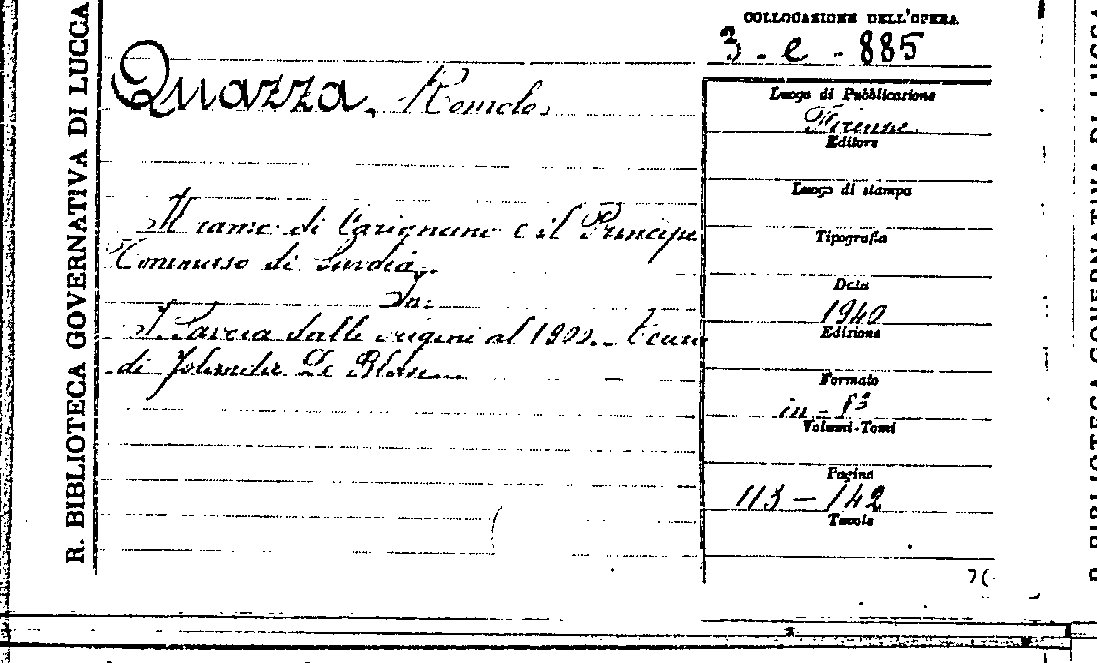 R. BIBLIOTECA GOVERNATIVA DI LUCCA
COLLOCAZIONE DELL'OPERA
3 - e - 885
Quazza, Romolo
Il ramo di Carignano e il Principe
Tommaso di Savoia.
In:
I Savoia dalle origini al 1900.
di Jolanda De Blasi
Luogo di Pubblicazione
Firenze
Editore
Luogo di stampa
Tipografia
Data
1940
Edizione
Formato
in - 8°
Volumi-Tomi
Pagine
113 - 142
Tavole